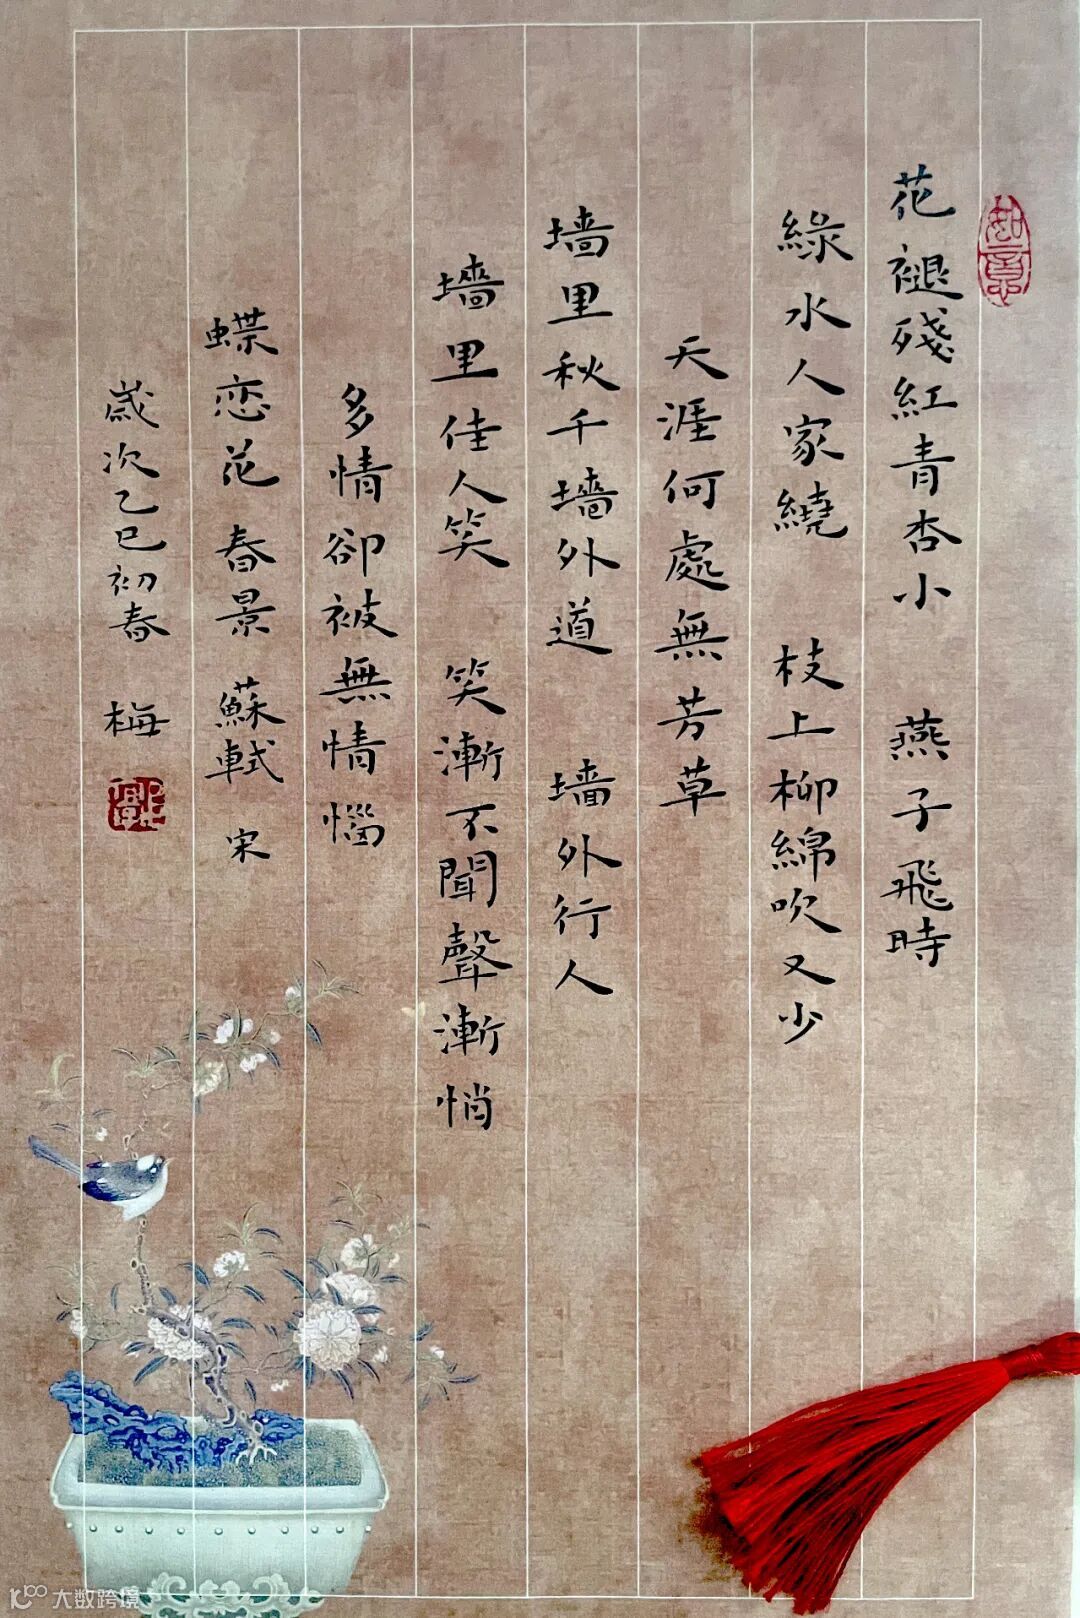 如意
花褪殘紅青杏小 燕子飛時
綠水人家繞 枝上柳綿吹又少
天涯何處無芳草
墙里秋千墙外道 墙外行人
墻里佳人笑 笑漸不聞聲漸悄
多情卻被無情惱
蝶恋花 春景 蘇軾 宋
歲次乙巳初春 梅
大数跨境